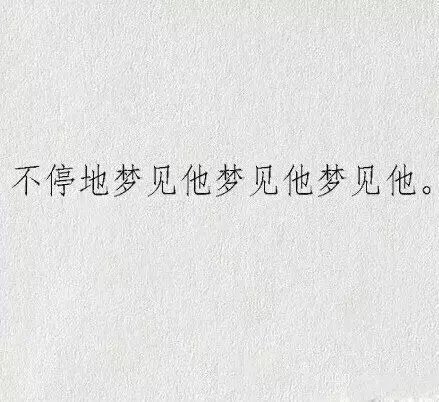 不停地梦见他梦见他梦见他。